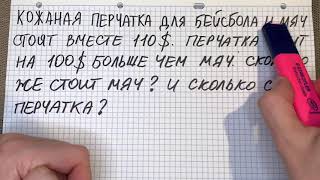 КОЖАНАЯ ПЕРЧАТКА ДЛЯ БЕЙСБОЛА И МЯЧ
СТОЯТ ВМЕСТЕ 110$. ПЕРЧАТКА
НА 100$ БОЛЬШЕ ЧЕМ МЯЧ.
ЖЕ СТОИТ МЯЧ? И СКОЛЬКО
ПЕРЧАТКА?